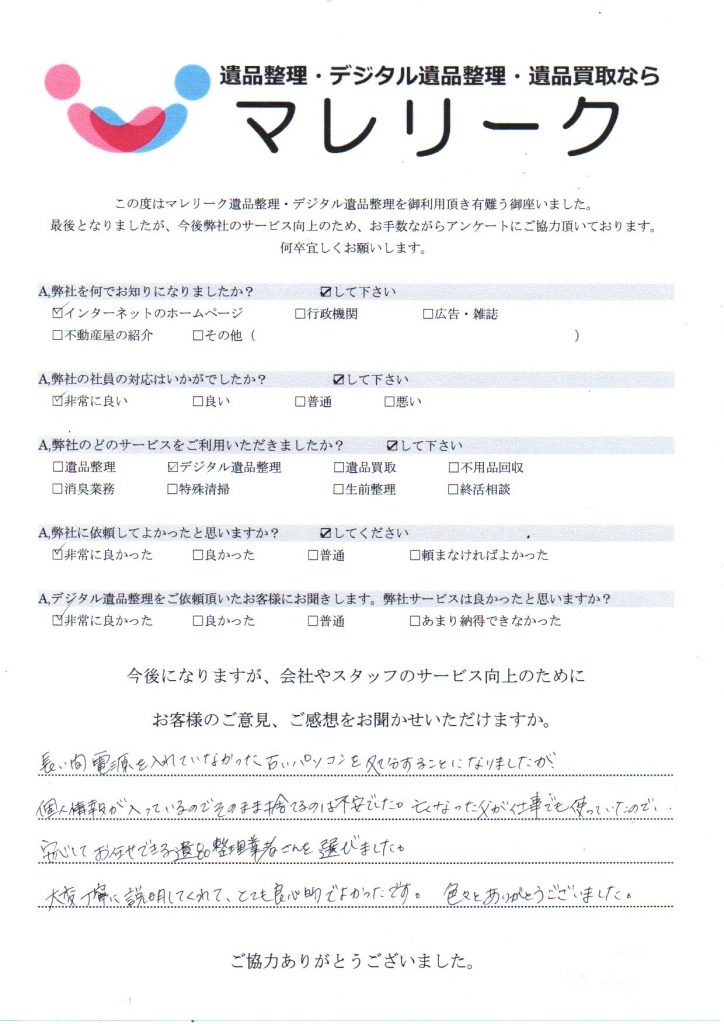 遺品整理・デジタル遺品整理・遺品買取なら
マレリーク
この度はマレリーク遺品整理・デジタル遺品整理を御利用頂き有難う御座いました。
最後となりましたが、今後弊社のサービス向上のため、お手数ながらアンケートにご協力頂いております。
何卒宜しくお願いします。
A,弊社を何でお知りになりましたか？ ☑して下さい
☑インターネットのホームページ □行政機関 □広告・雑誌
□不動産屋の紹介 □その他（ ）
A,弊社の社員の対応はいかがでしたか？ ☑して下さい
☑非常に良い □良い □普通 □悪い
A,弊社のどのサービスをご利用いただきましたか？ ☑して下さい
□遺品整理 ☑デジタル遺品整理 □遺品買取 □不用品回収
□消臭業務 □特殊清掃 □生前整理 □終活相談
A,弊社に依頼してよかったと思いますか？ ☑してください
☑非常に良かった □良かった □普通 □頼まなければよかった
A,デジタル遺品整理をご依頼頂いたお客様にお聞きします。弊社サービスは良かったと思いますか？
☑非常に良かった □良かった □普通 □あまり納得できなかった
今後になりますが、会社やスタッフのサービス向上のために
お客様のご意見、ご感想をお聞かせいただけますか。
長い間電源を入れていなかった古いパソコンを処分することになりましたが
個人情報が入っているのでそのまま捨てるのは不安でした。亡くなった父が仕事でも使っていたので、
安心してお任せできる遺品整理業者さんを選びました。
大変丁寧に説明してくれて、とても良心的でよかったです。 色々とありがとうございました。
ご協力ありがとうございました。